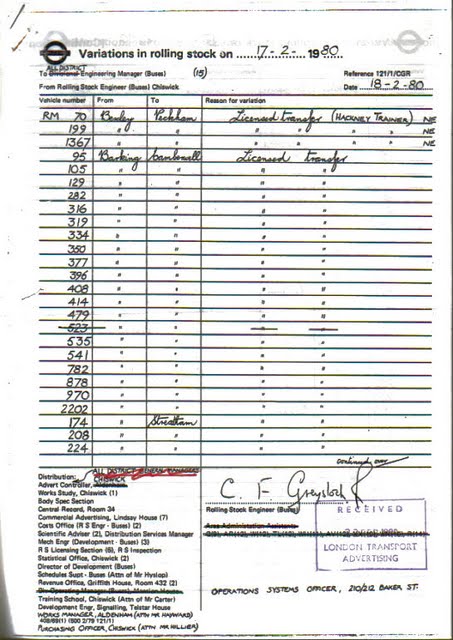 Variations in rolling stock on 17-2- 1980
ALL DISTRICT
To Divisional Engineering Manager (Buses) (15) Reference 121/1/CGR
From Rolling Stock Engineer (Buses) Chiswick Date 18-2-80
Vehicle number From To Reason for variation
RM 70 Bexley Peckham Licensed transfer (HACKNEY TRAINER) NE
199 " " " " " " NE
1367 " " " " " " NE
95 Barking Camberwell Licensed transfer
105 " " " "
129 " " " "
282 " " " "
316 " " " "
319 " " " "
334 " " " "
350 " " " "
377 " " " "
396 " " " "
408 " " " "
414 " " " "
479 " " " "
523 " "
535 " " " "
541 " " " "
782 " " " "
878 " " " "
970 " " " "
2202 " " " "
174 " Streatham " "
208 " " " "
224 " " " "
continued over
Distribution: ALL DISTRICT GENERAL MANAGERS
CHISWICK
Advert Controller, Aldenham
Works Study, Chiswick (1)
Body Spec Section
Central Record, Room 34
Commercial Advertising, Lindsay House (7)
Costs Office (R S Engr - Buses) (2)
Scientific Adviser (2), Distribution Services Manager
Mech Engr (Development - Buses) (3)
R S Licensing Section (6), R S Inspection
Statistical Office, Chiswick (2)
Director of Development (Buses)
Schedules Supt - Buses (Attn of Mr Hyslop)
Revenue Office, Griffith House, Room 432 (2)
Training School, Chiswick (Attn of Mr Carter)
Development Engr, Signalling, Telstar House
WORKS MANAGER, ALDENHAM (ATTN MR HAYWARD)
408/69(1) (800 2/79 121/1)
PURCHASING OFFICER, CHISWICK (ATTN MR HILLIER)
Rolling Stock Engineer (Buses)
Area Administration Assistants
RECEIVED
LONDON TRANSPORT
ADVERTISING
OPERATIONS SYSTEMS OFFICER, 210/212 BAKER ST.